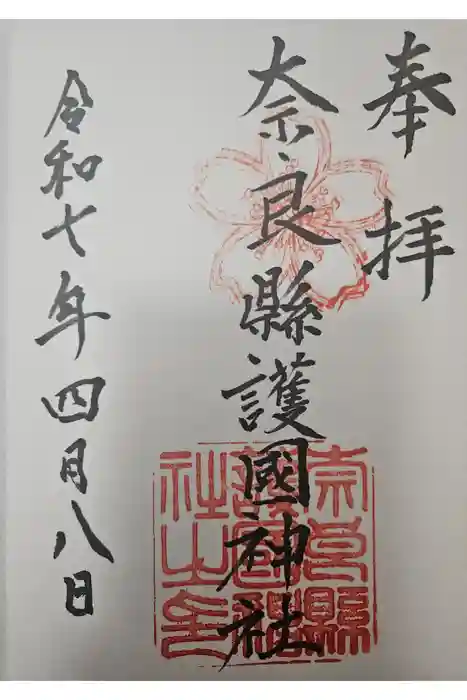 奉拝
奈良縣護國神社
奈良縣護國神社之印
令和七年四月八日